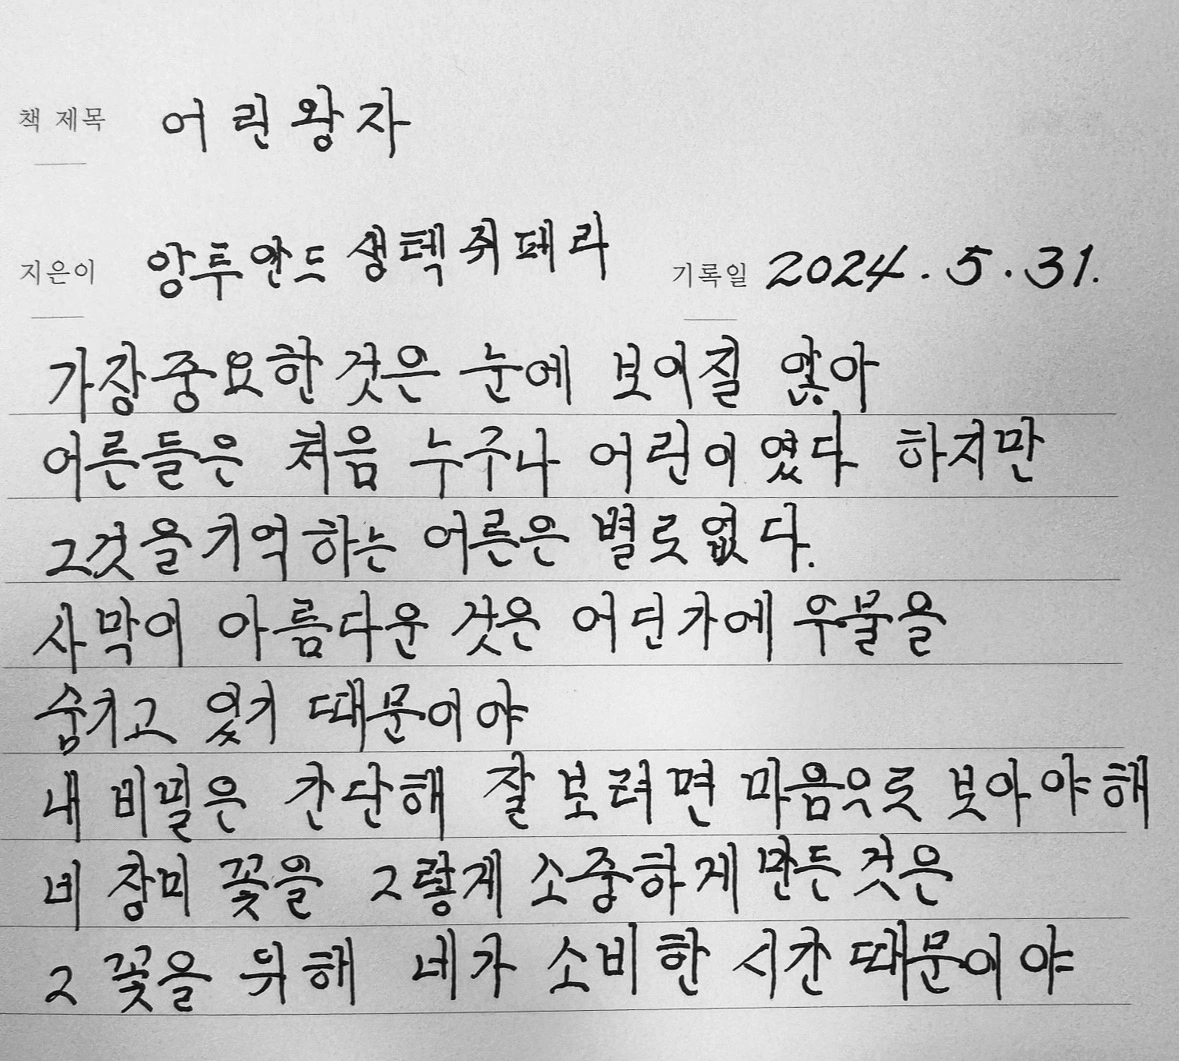 책 제목 어린왕자
지은이 앙투안드 생텍쥐페리 기록일 2024.5.31.
가장중요한 것은 눈에 보이질 않아
어른들은 처음 누구나 어린이였다 하지만
그것을기억하는 어른은 별로없다.
사막이 아름다운 것은 어딘가에 우물을
숨기고 있기 때문이야
내 비밀은 간단해 잘 보려면 마음으로 보아야해
네 장미 꽃을 그렇게 소중하게 만든 것은
그 꽃을 위해 네가 소비한 시간 때문이야